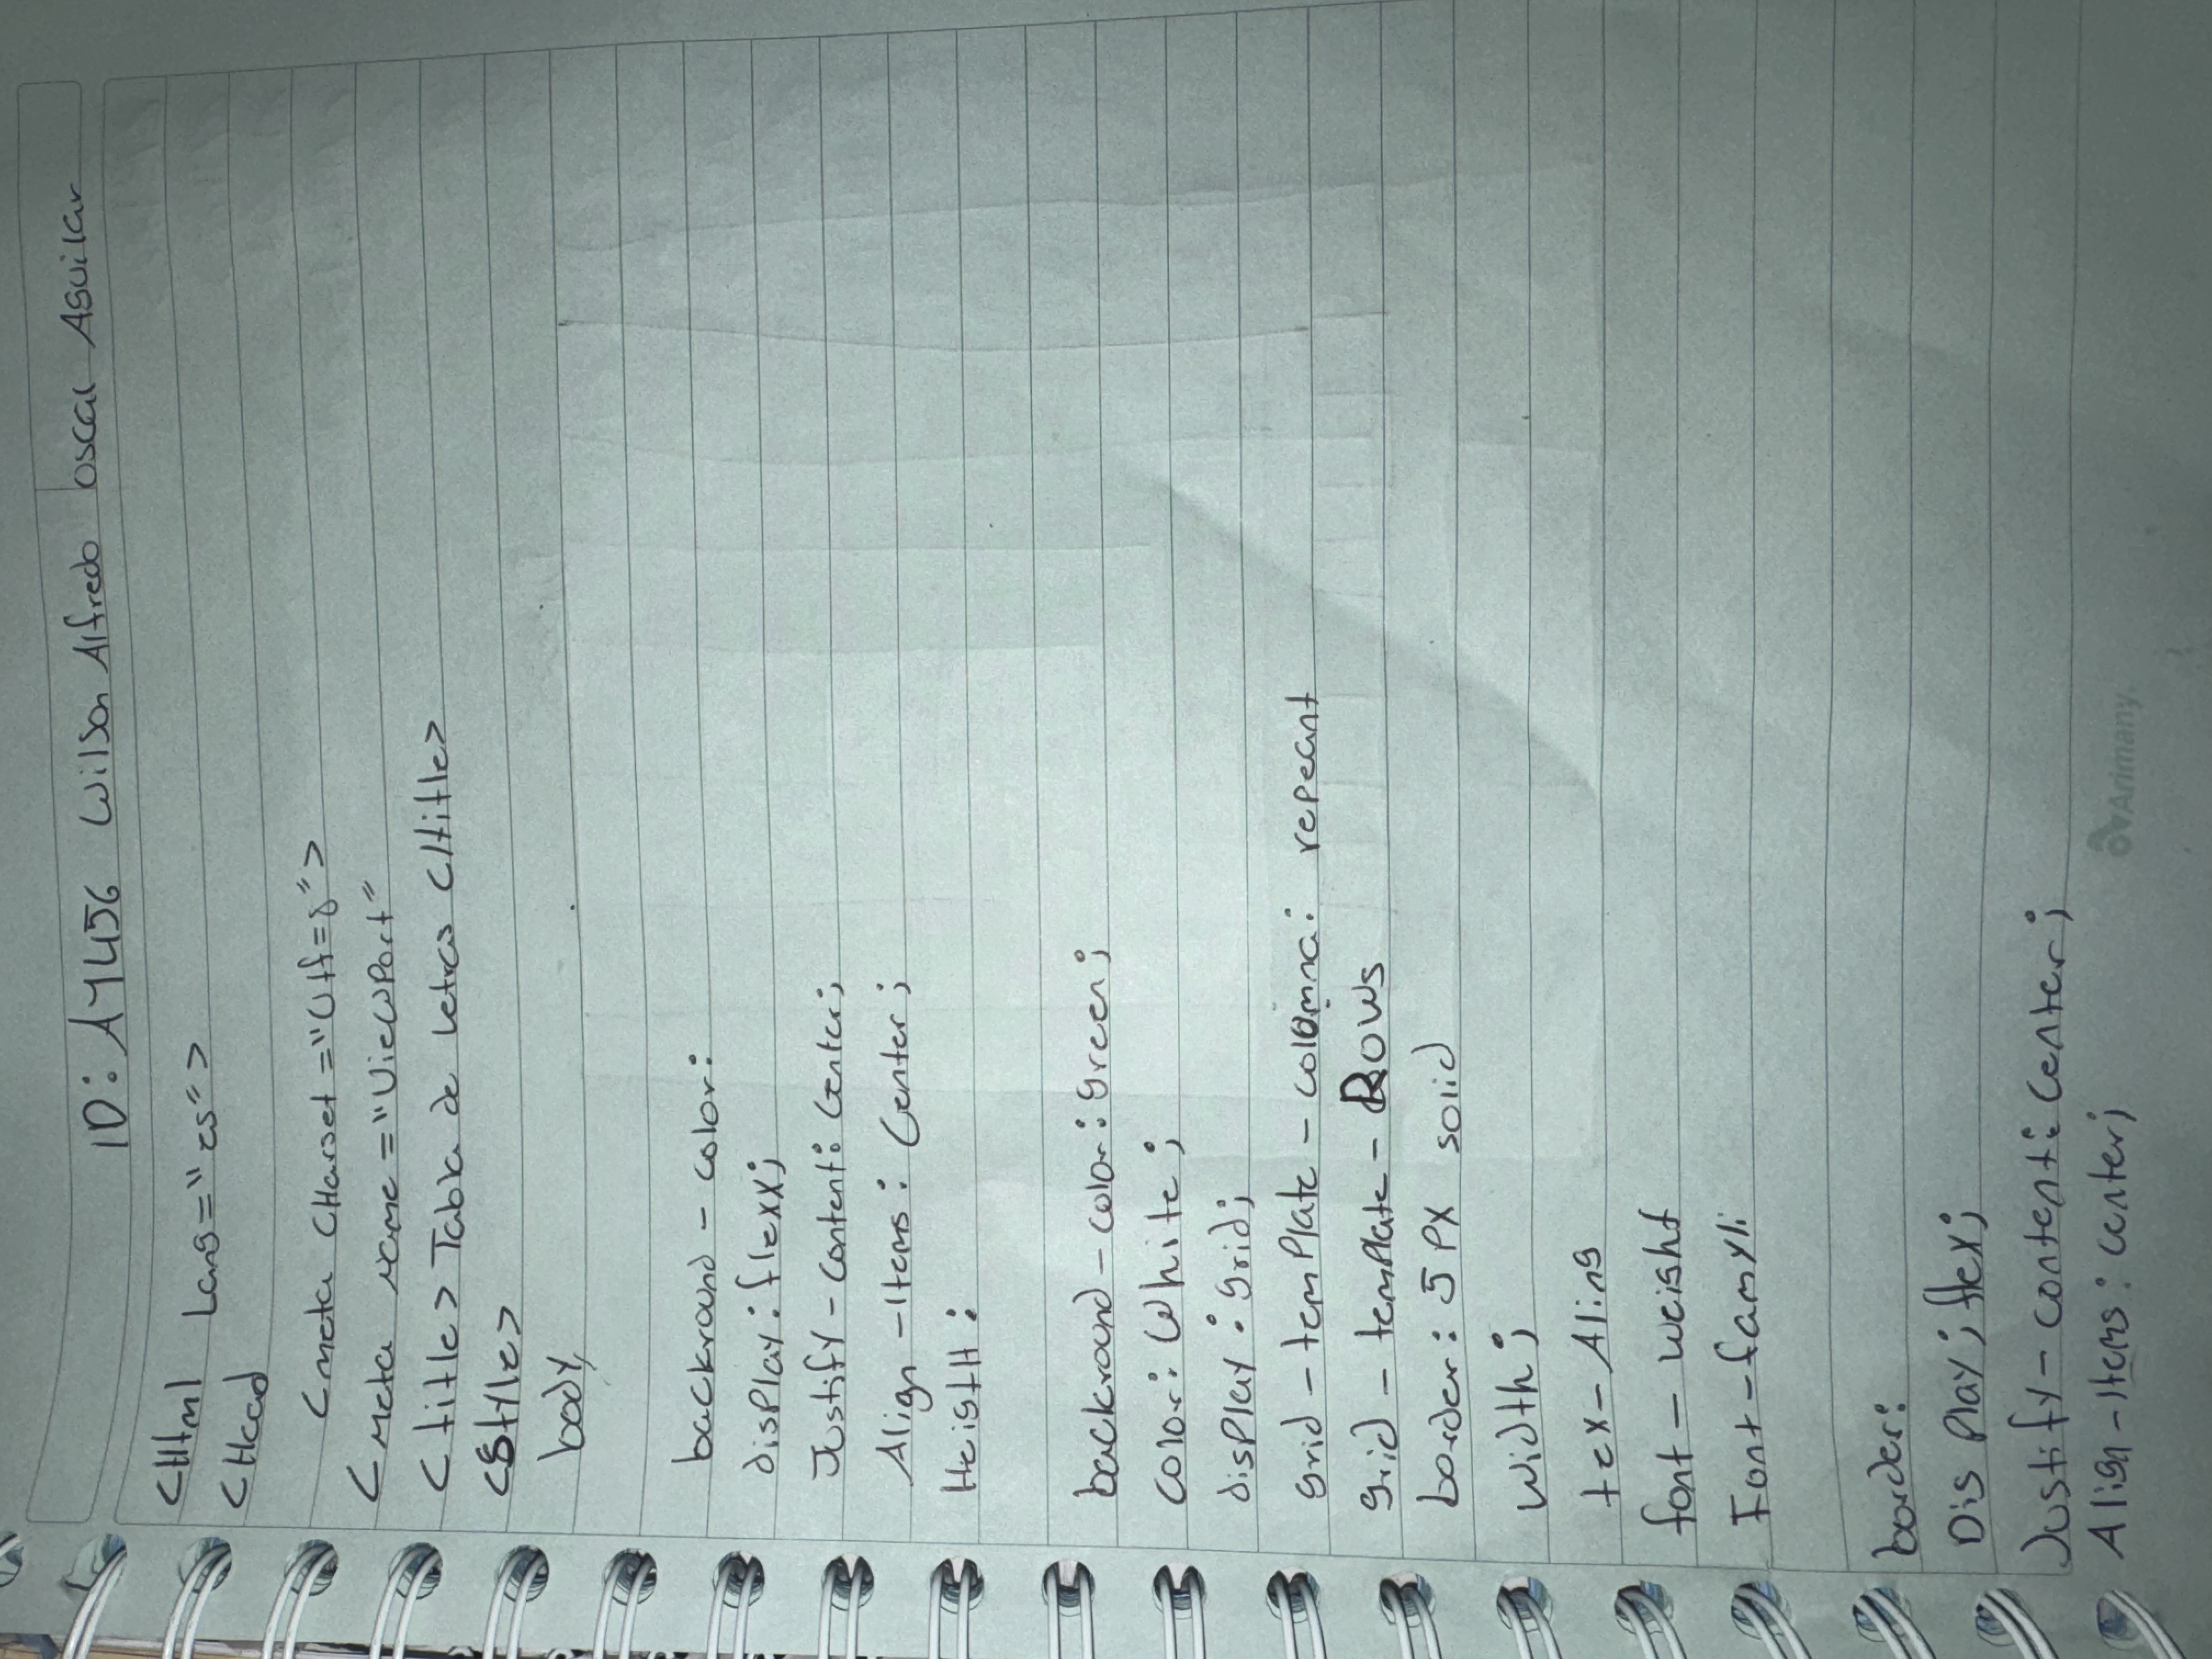 ID: A4456 Wilson Alfredo boscal Aguilar
<Html Lang="es">
<Head
<meta CHarset="Utf=8">
<meta name="ViewPort"
<title> Tabla de letras </title>
<Style>
body
backround-color:
display: flexx;
Justify-Content: Center;
Align-Items: Center;
Heigth:
backround-color: green;
color: White;
display: grid;
grid-temPlate-colomna: repeant
grid-temPlate-Rows
border: 5 Px solid
width;
tex-Aling
font-weight
Font-famyli
border:
Dis Play; flex;
Justify-content: center;
Align-Items: center;
Arimany.